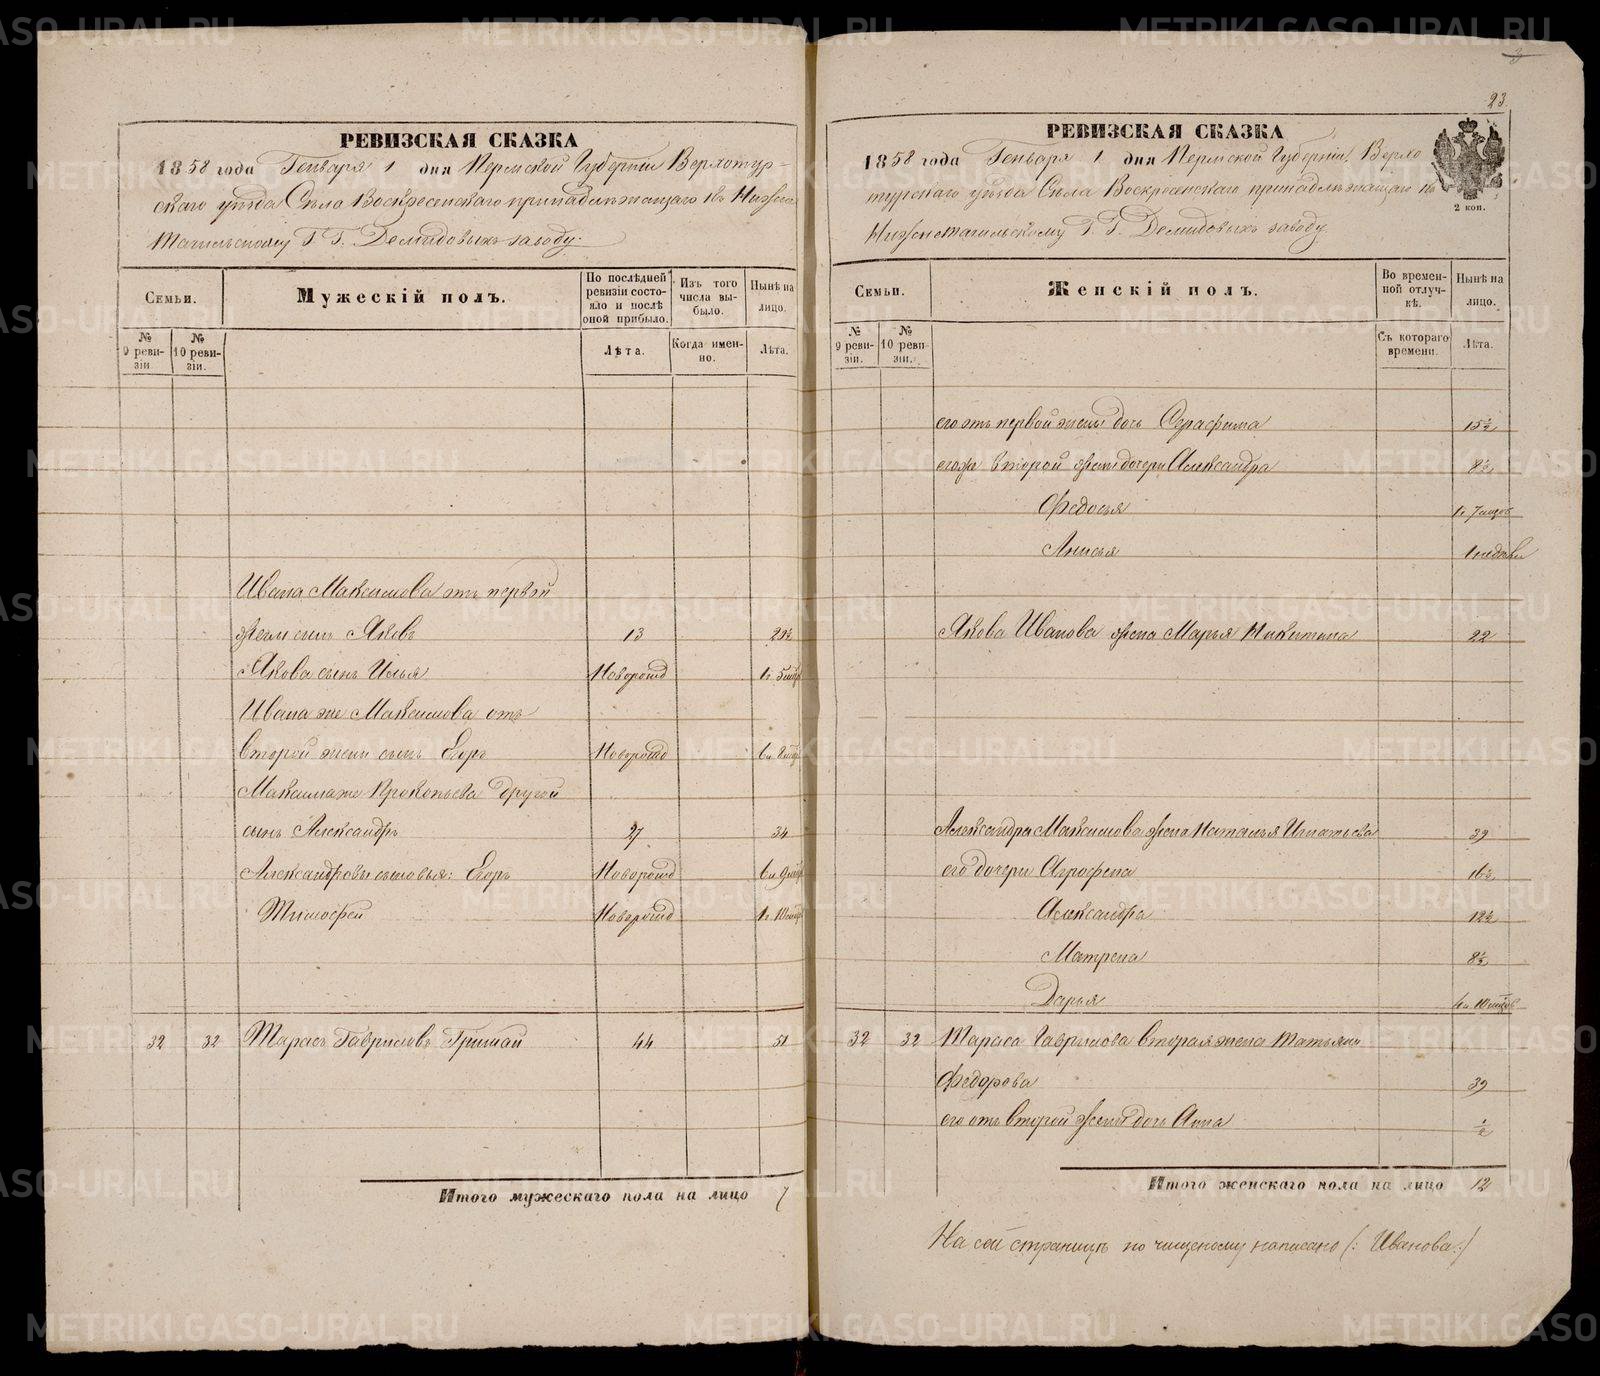 РЕВИЗСКАЯ СКАЗКА
1858 года Генваря 1 дня Пермской Губернии Верхотур-
скаго уѣзда Села Воскресенскаго принадлежащаго къ Нижне
Тагильскому Г. Г. Демидовыхъ заводу.
Семьи.
Мужескій полъ.
По послѣдней ревизіи состояло и послѣ оной прибыло.
Изъ того числа выбыло.
Нынѣ на лицо.
№ 9 ревизіи.
№ 10 ревизіи.
Лѣта.
Когда именно.
Лѣта.
Ивана Максимова отъ первой
жены сынъ Яковъ 13 20½
Якова сынъ Илья Новорожд 1 г. 5 мѣс
Ивана же Максимова отъ
второй жены сынъ Егоръ Новорожд
Максима же Прокопьева другой
сынъ Александръ 27 34
Александровы сыновья: Егоръ Новорожд
Тимофей Новорожд
32 32 Тарасъ Гавриловъ Гришай 44 51
Итого мужескаго пола на лицо 7
23
РЕВИЗСКАЯ СКАЗКА
1858 года Генваря 1 дня Пермской Губерніи Верхо
турскаго уѣзда Села Воскресенскаго принадлежащаго къ
Нижнетагильскому Г. Г. Демидовыхъ заводу
2 коп.
Семьи.
Женскій полъ.
Во временной отлучкѣ.
Нынѣ на лицо.
№ 9 ревизіи.
№ 10 ревизіи.
Съ котораго времени.
Лѣта.
его отъ первой жены дочь Серафима 15½
егоже второй жены дочери Александра 8½
Федосья 1 г. 7 мѣсов
Анисья 1 недѣли
Якова Иванова жена Марья Никитина 22
Александра Максимова жена Наталья Игнатьева 39
его дочери Аграфена 16½
Александра 12½
Матрена 8½
Дарья
32 32 Тараса Гаврилова вторая жена Татьяна
Федорова 39
его отъ второй жены дочь Анна ½
Итого женскаго пола на лицо 12
На сей страницѣ по чищеному написано (: Иванова :)
METRIKI.GASO-URAL.RU